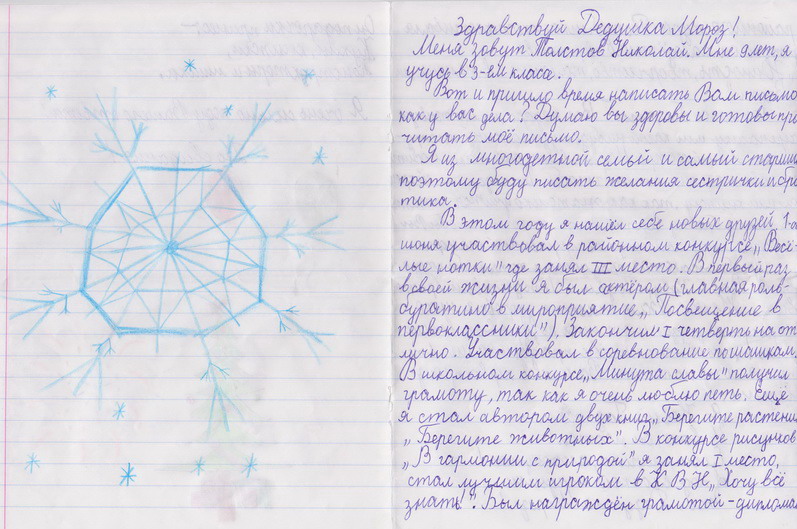 Здравствуй Дедушка Мороз!
Меня зовут Толстов Николай. Мне 9 лет, я
учусь в 3-ем класса.
Вот и пришло время написать Вам письмо
как у вас дела? Думаю вы здоровы и готовы про
читать моё письмо.
Я из многодетной семьй и самый старший
поэтому буду писать желания сестрички и бра
тика.
В этом году я нашёл себе новых друзей, 1-о
июня участвовал в районном конкурсе „Весё-
лые нотки" где занял III место. В первый раз
в своей жизни я был актёром (главная роль-
буратино в мироприятие „Посвещение в
первоклассники"). Закончил I четверть на от
лично. Участвовал в соревнование по шашкам.
В школьном конкурсе „Минута славы" получил
грамоту, так как я очень люблю петь. Ещё
я стал автором двух книг „Берегите растени
„Берегите животных". В конкурсе рисунков
„В гармонии с природой" я занял I место,
стал лучшим игроком в К В Н „Хочу всё
знать!". Был награждён грамотой-диплома